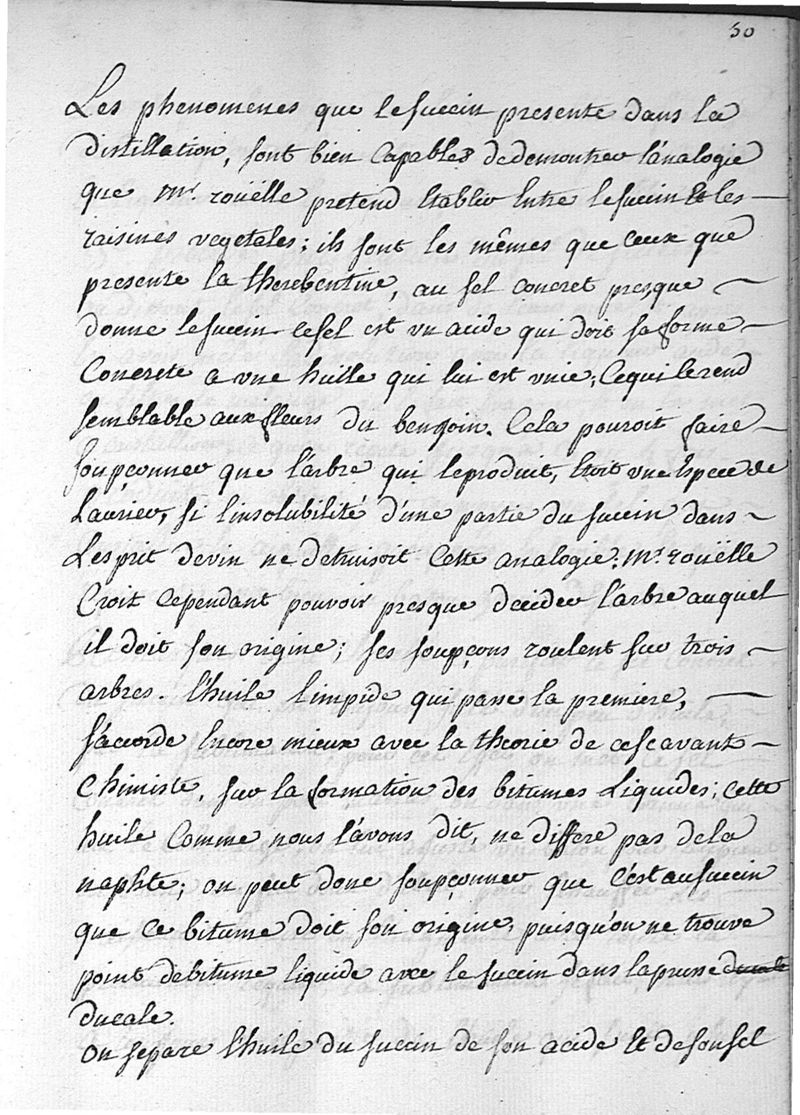 50
Les phenomenes que le succin presente dans la
distillation, sont bien capables de demontrer l'analogie
que Mr. rouëlle pretend Etablir Entre le succin Et les
raisines vegetales; ils sont les mêmes que ceux que
presente la therebentine, au sel concret presque
donne le succin. le sel est un acide qui doit sa forme
Concrete a une huille qui lui est unie; Ce qui le rend
semblable aux fleurs du benjoin. Cela pouroit faire
soupçonner que l'arbre qui le produit, Etoit une Espece de
Laurier, si l'insolubilité d'une partie du succin dans
L'esprit de vin ne detruisoit Cette analogie. Mr. rouëlle
Croit Cependant pouvoir presque decider l'arbre auquel
il doit son origine; ses soupçons roulent sur trois
arbres. l'huile limpide qui passe la premiere,
s'accorde Encore mieux avec la theorie de ce scavant
Chimiste, sur la formation des bitumes Liquides; Cette
huile Comme nous l'avons dit, ne differe pas de la
naphte; on peut donc soupçonner que C'est au succin
que Ce bitume doit son origine, puisqu'on ne trouve
point de bitume liquide avec le succin dans la prusse
ducale.
On separe l'huile du succin de son acide Et de son sel